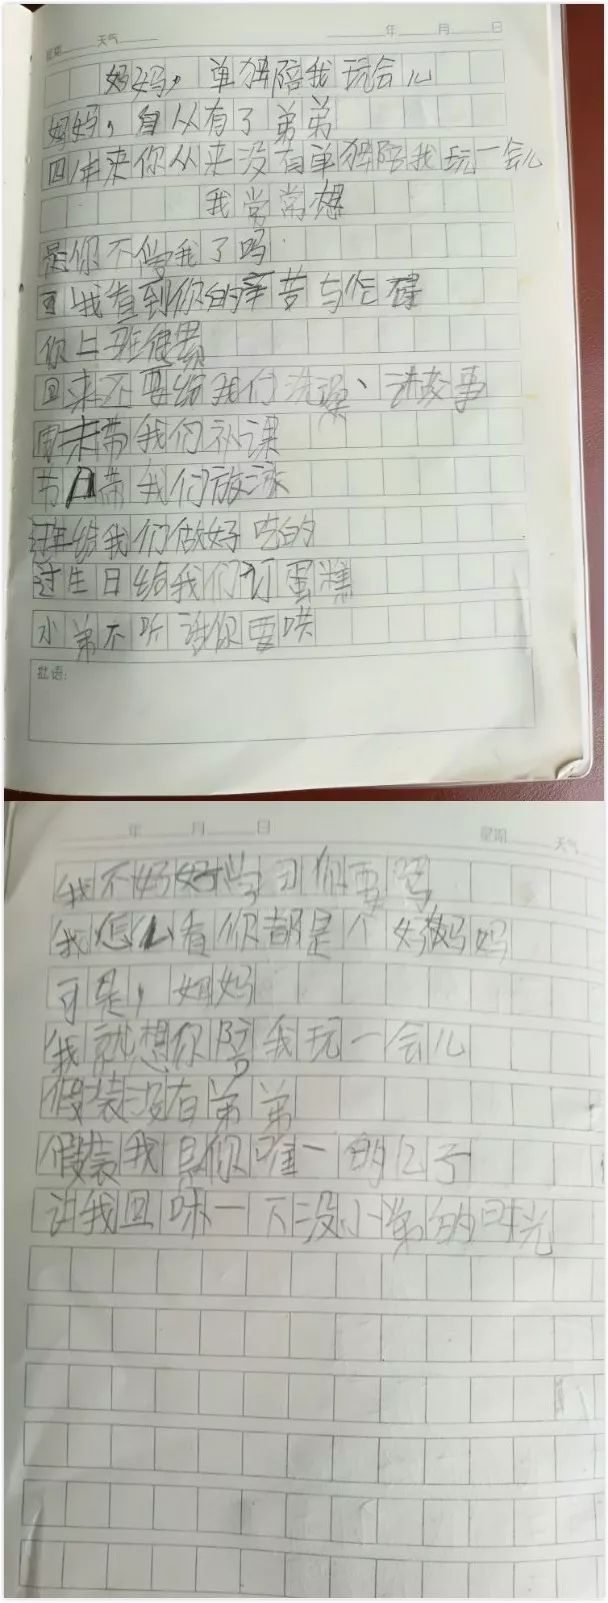 星期 天气 年 月 日
妈妈，单独陪我玩会儿
妈妈，自从有了弟弟
四年来你从来没有单独陪我玩一会儿
我常常想
是你不爱我了吗
可我看到你的辛苦与忙碌
你上班很累
回来还要给我们洗澡、讲故事
周末带我们补课
节日带我们放松
过年给我们做好吃的
过生日给我们订蛋糕
小弟不听话你要哄
批语：
年 月 日 星期 天气
我不好好学习你要骂
我怎么看你都是个好妈妈
可是，妈妈
我就想你陪我玩一会儿
假装没有弟弟
假装我是你唯一的儿子
让我回味一下没小弟的时光